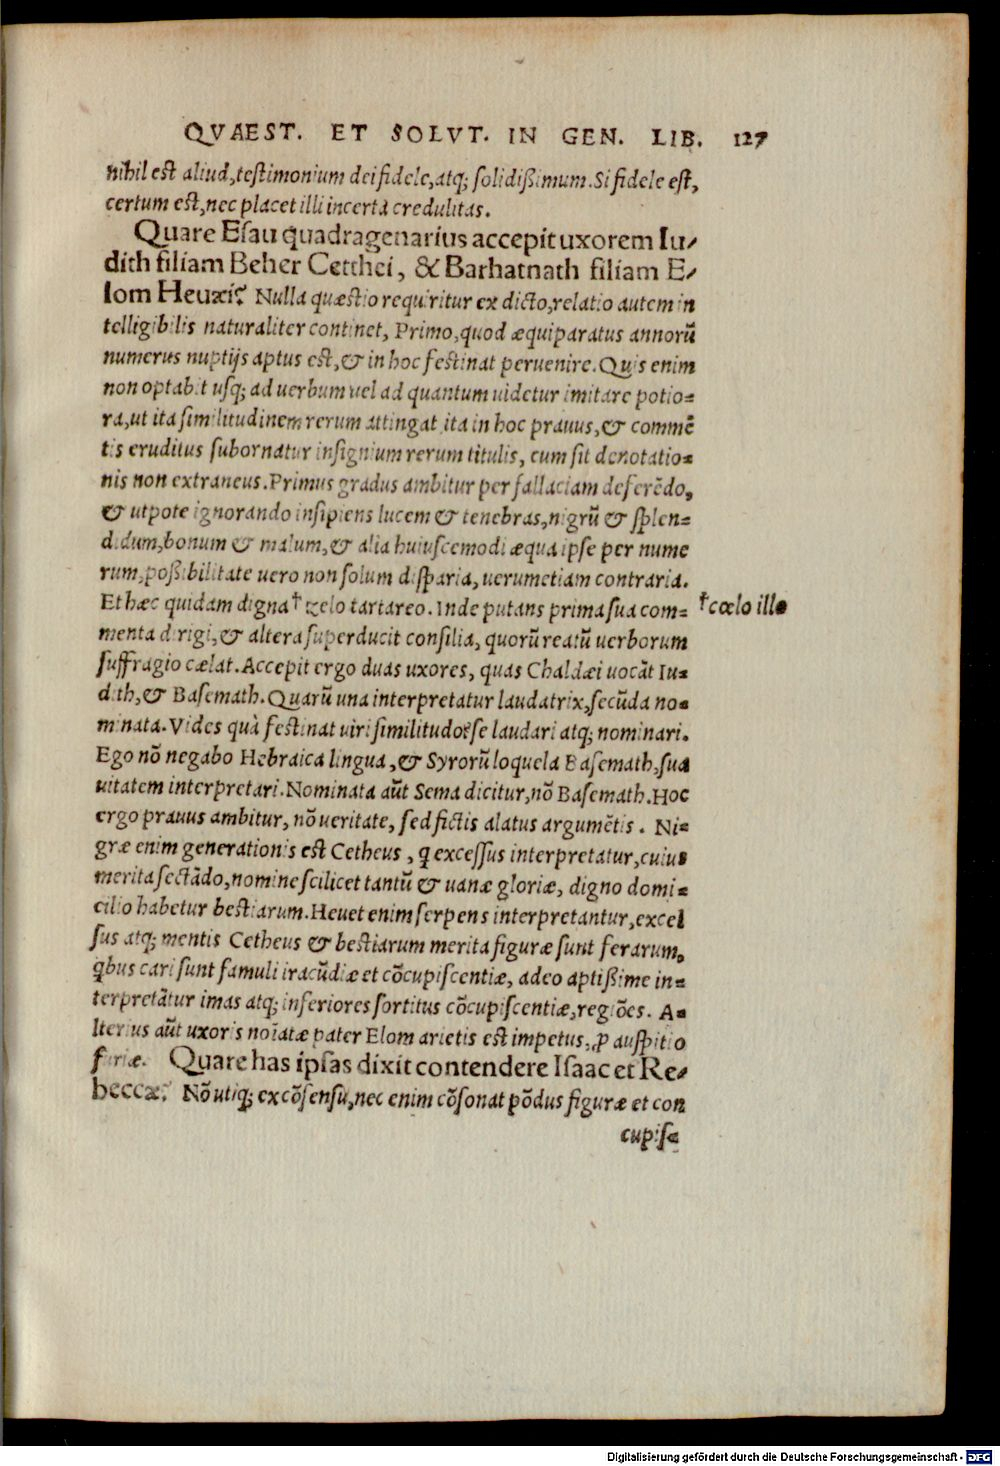 QVAEST. ET SOLVT. IN GEN. LIB. 127
nihil est aliud, testimonium dei fidele, atq; solidißimum. Si fidele est,
certum est, nec placet illi incerta credulitas.
Quare Esau quadragenarius accepit uxorem Iu⸗
dith filiam Beher Cetthei, & Barhatnath filiam E⸗
lom Heuæi? Nulla quæstio requiritur ex dicto, relatio autem in
telligibilis naturaliter continet, Primo, quod æquiparatus annorũ
numerus nuptijs aptus est, & in hoc festinat peruenire. Quis enim
non optabit usq; ad uerbum uel ad quantum uidetur imitare potio⸗
ra, ut ita similitudinem rerum attingat ita in hoc prauus, & commẽ
tis eruditus subornatur insignium rerum titulis, cum sit denotatio⸗
nis non extraneus. Primus gradus ambitur per fallaciam deferẽdo,
& utpote ignorando insipiens lucem & tenebras, nigrũ & splen⸗
didum, bonum & malum, & alia huiuscemodi æqua ipse per nume
rum, poßibilitate uero non solum disparia, uerumetiam contraria.
Et hæc quidam digna † zelo tartareo. Inde putans prima sua com⸗ † cœlo illo
menta dirigi, & altera superducit consilia, quorũ reatũ uerborum
suffragio cælat. Accepit ergo duas uxores, quas Chaldæi uocãt Iu⸗
dith, & Basemath. Quarũ una interpretatur laudatrix, secũda no⸗
minata. Vides quà festinat uiri similitudo? se laudari atq; nominari.
Ego nõ negabo Hebraica lingua, & Syrorũ loquela Basemath, sua
uitatem interpretari. Nominata aũt Sema dicitur, nõ Basemath. Hoc
ergo prauus ambitur, nõ ueritate, sed fictis alatus argumẽtis. Ni⸗
græ enim generationis est Cetheus, q excessus interpretatur, cuius
merita sectãdo, nomine scilicet tantũ & uanæ gloriæ, digno domi⸗
cilio habetur bestiarum. Heuet enim serpens interpretantur, excel
sus atq; mentis Cetheus & bestiarum merita figuræ sunt ferarum,
qbus cari sunt famuli iracũdiæ et cõcupiscentiæ, adeo aptißime in⸗
terpretãtur imas atq; inferiores sortitus cõcupiscentiæ, regiões. A⸗
lterius aũt uxoris noĩatæ pater Elom arietis est impetus, ꝑ auspitio
furiæ. Quare has ipsas dixit contendere Isaac et Re⸗
beccæ? Nõ utiq; ex cõsensu, nec enim cõsonat põdus figuræ et con
cupis⸗
Digitalisierung gefördert durch die Deutsche Forschungsgemeinschaft - DFG